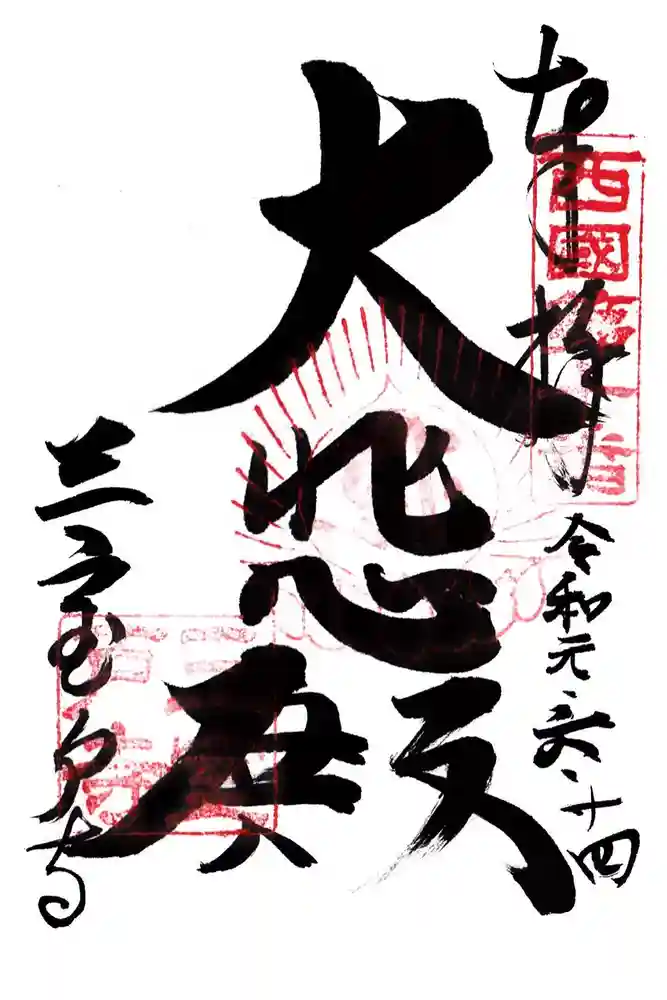 奉拝
西國
令和元、六、十四
大悲殿
三室戸寺